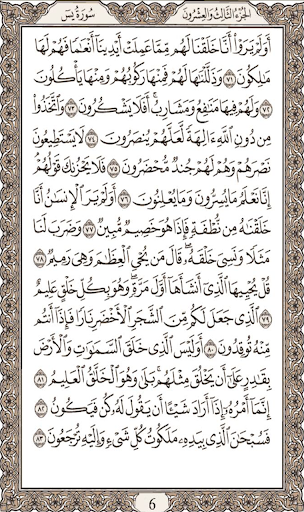 الجزء الثالث والعشرون سورة يس
أَوَلَمْ يَرَوْا۟ أَنَّا خَلَقْنَا لَهُم مِّمَّا عَمِلَتْ أَيْدِينَآ أَنْعَـٰمًا فَهُمْ لَهَا
مَـٰلِكُونَ ٧١ وَذَلَّلْنَـٰهَا لَهُمْ فَمِنْهَا رَكُوبُهُمْ وَمِنْهَا يَأْكُلُونَ
٧٢ وَلَهُمْ فِيهَا مَنَـٰفِعُ وَمَشَارِبُ ۖ أَفَلَا يَشْكُرُونَ ٧٣ وَٱتَّخَذُوا۟
مِن دُونِ ٱللَّهِ ءَالِهَةً لَّعَلَّهُمْ يُنصَرُونَ ٧٤ لَا يَسْتَطِيعُونَ
نَصْرَهُمْ وَهُمْ لَهُمْ جُندٌ مُّحْضَرُونَ ٧٥ فَلَا يَحْزُنكَ قَوْلُهُمْ ۘ
إِنَّا نَعْلَمُ مَا يُسِرُّونَ وَمَا يُعْلِنُونَ ٧٦ أَوَلَمْ يَرَ ٱلْإِنسَـٰنُ أَنَّا
خَلَقْنَـٰهُ مِن نُّطْفَةٍ فَإِذَا هُوَ خَصِيمٌ مُّبِينٌ ٧٧ وَضَرَبَ لَنَا
مَثَلًا وَنَسِىَ خَلْقَهُۥ ۖ قَالَ مَن يُحْىِ ٱلْعِظَـٰمَ وَهِىَ رَمِيمٌ ٧٨
قُلْ يُحْيِيهَا ٱلَّذِىٓ أَنشَأَهَآ أَوَّلَ مَرَّةٍ ۖ وَهُوَ بِكُلِّ خَلْقٍ عَلِيمٌ
٧٩ ٱلَّذِى جَعَلَ لَكُم مِّنَ ٱلشَّجَرِ ٱلْأَخْضَرِ نَارًا فَإِذَآ أَنتُم
مِّنْهُ تُوقِدُونَ ٨٠ أَوَلَيْسَ ٱلَّذِى خَلَقَ ٱلسَّمَـٰوَٰتِ وَٱلْأَرْضَ
بِقَـٰدِرٍ عَلَىٰٓ أَن يَخْلُقَ مِثْلَهُم ۚ بَلَىٰ وَهُوَ ٱلْخَلَّـٰقُ ٱلْعَلِيمُ ٨١
إِنَّمَآ أَمْرُهُۥٓ إِذَآ أَرَادَ شَيْـًٔا أَن يَقُولَ لَهُۥ كُن فَيَكُونُ ٨٢
فَسُبْحَـٰنَ ٱلَّذِى بِيَدِهِۦ مَلَكُوتُ كُلِّ شَىْءٍ وَإِلَيْهِ تُرْجَعُونَ ٨٣
6